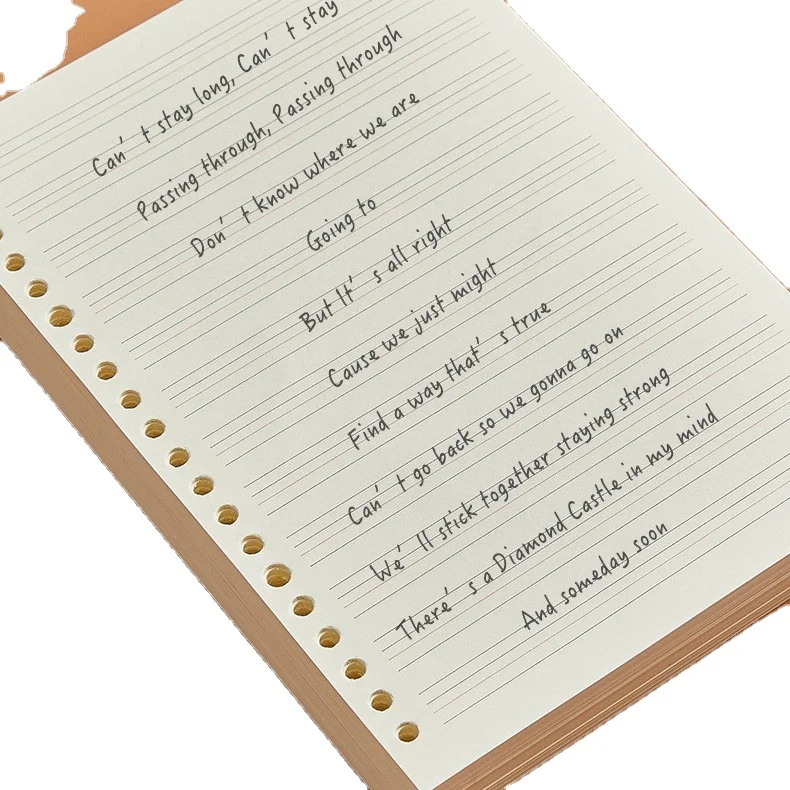 Can't stay long, Can't stay
Passing through, Passing through
Don't know where we are
Going to
But It's all right
Cause we just might
Find a way that's true
Can't go back so we gonna go on
We'll stick together staying strong
There's a Diamond Castle in my mind
And someday soon